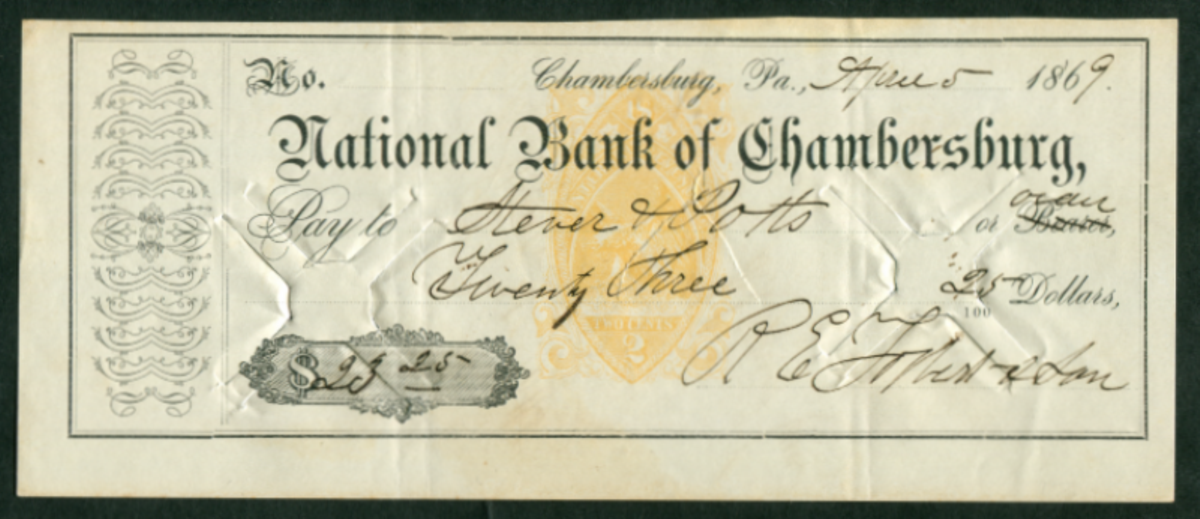 No. Chambersburg, Pa., April 5 1869.
National Bank of Chambersburg,
Pay to Stever & Potts or order Bearer,
Twenty Three 25/100 Dollars,
TWO CENTS
2
$23 25
R E & Son